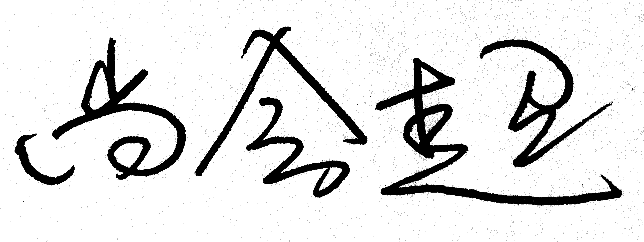 尚会超